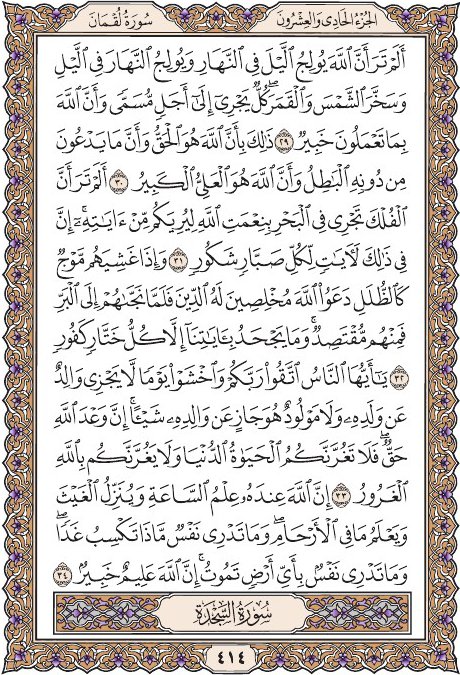 الجُزْءُ الحَادِي وَالعِشْرُونَ
سُورَةُ لُقْمَان
أَلَمْ تَرَ أَنَّ ٱللَّهَ يُولِجُ ٱلَّيْلَ فِي ٱلنَّهَارِ وَيُولِجُ ٱلنَّهَارَ فِي ٱلَّيْلِ
وَسَخَّرَ ٱلشَّمْسَ وَٱلْقَمَرَۖ كُلٌّ يَجْرِيٓ إِلَىٰٓ أَجَلٍ مُّسَمًّى وَأَنَّ ٱللَّهَ
بِمَا تَعْمَلُونَ خَبِيرٌ ٢٩ ذَٰلِكَ بِأَنَّ ٱللَّهَ هُوَ ٱلْحَقُّ وَأَنَّ مَا يَدْعُونَ
مِن دُونِهِ ٱلْبَٰطِلُ وَأَنَّ ٱللَّهَ هُوَ ٱلْعَلِيُّ ٱلْكَبِيرُ ٣٠ أَلَمْ تَرَ أَنَّ
ٱلْفُلْكَ تَجْرِي فِي ٱلْبَحْرِ بِنِعْمَتِ ٱللَّهِ لِيُرِيَكُم مِّنْ ءَايَٰتِهِۦٓۚ إِنَّ
فِي ذَٰلِكَ لَأٓيَٰتٍ لِّكُلِّ صَبَّارٍ شَكُورٍ ٣١ وَإِذَا غَشِيَهُم مَّوْجٌ
كَٱلظُّلَلِ دَعَوُا۟ ٱللَّهَ مُخْلِصِينَ لَهُ ٱلدِّينَ فَلَمَّا نَجَّىٰهُمْ إِلَى ٱلْبَرِّ
فَمِنْهُم مُّقْتَصِدٌۚ وَمَا يَجْحَدُ بِـَٔايَٰتِنَآ إِلَّا كُلُّ خَتَّارٍ كَفُورٍ
٣٢ يَٰٓأَيُّهَا ٱلنَّاسُ ٱتَّقُوا۟ رَبَّكُمْ وَٱخْشَوْا۟ يَوْمًا لَّا يَجْزِي وَالِدٌ
عَن وَلَدِهِۦ وَلَا مَوْلُودٌ هُوَ جَازٍ عَن وَالِدِهِۦ شَيْـًٔاۚ إِنَّ وَعْدَ ٱللَّهِ
حَقٌّۖ فَلَا تَغُرَّنَّكُمُ ٱلْحَيَوٰةُ ٱلدُّنْيَا وَلَا يَغُرَّنَّكُم بِٱللَّهِ
ٱلْغَرُورُ ٣٣ إِنَّ ٱللَّهَ عِندَهُۥ عِلْمُ ٱلسَّاعَةِ وَيُنَزِّلُ ٱلْغَيْثَ
وَيَعْلَمُ مَا فِي ٱلْأَرْحَامِۖ وَمَا تَدْرِي نَفْسٌ مَّاذَا تَكْسِبُ غَدًاۖ
وَمَا تَدْرِي نَفْسٌۢ بِأَيِّ أَرْضٍ تَمُوتُۚ إِنَّ ٱللَّهَ عَلِيمٌ خَبِيرٌۢ ٣٤
سُورَةُ السَّجْدَةِ
٤١٤